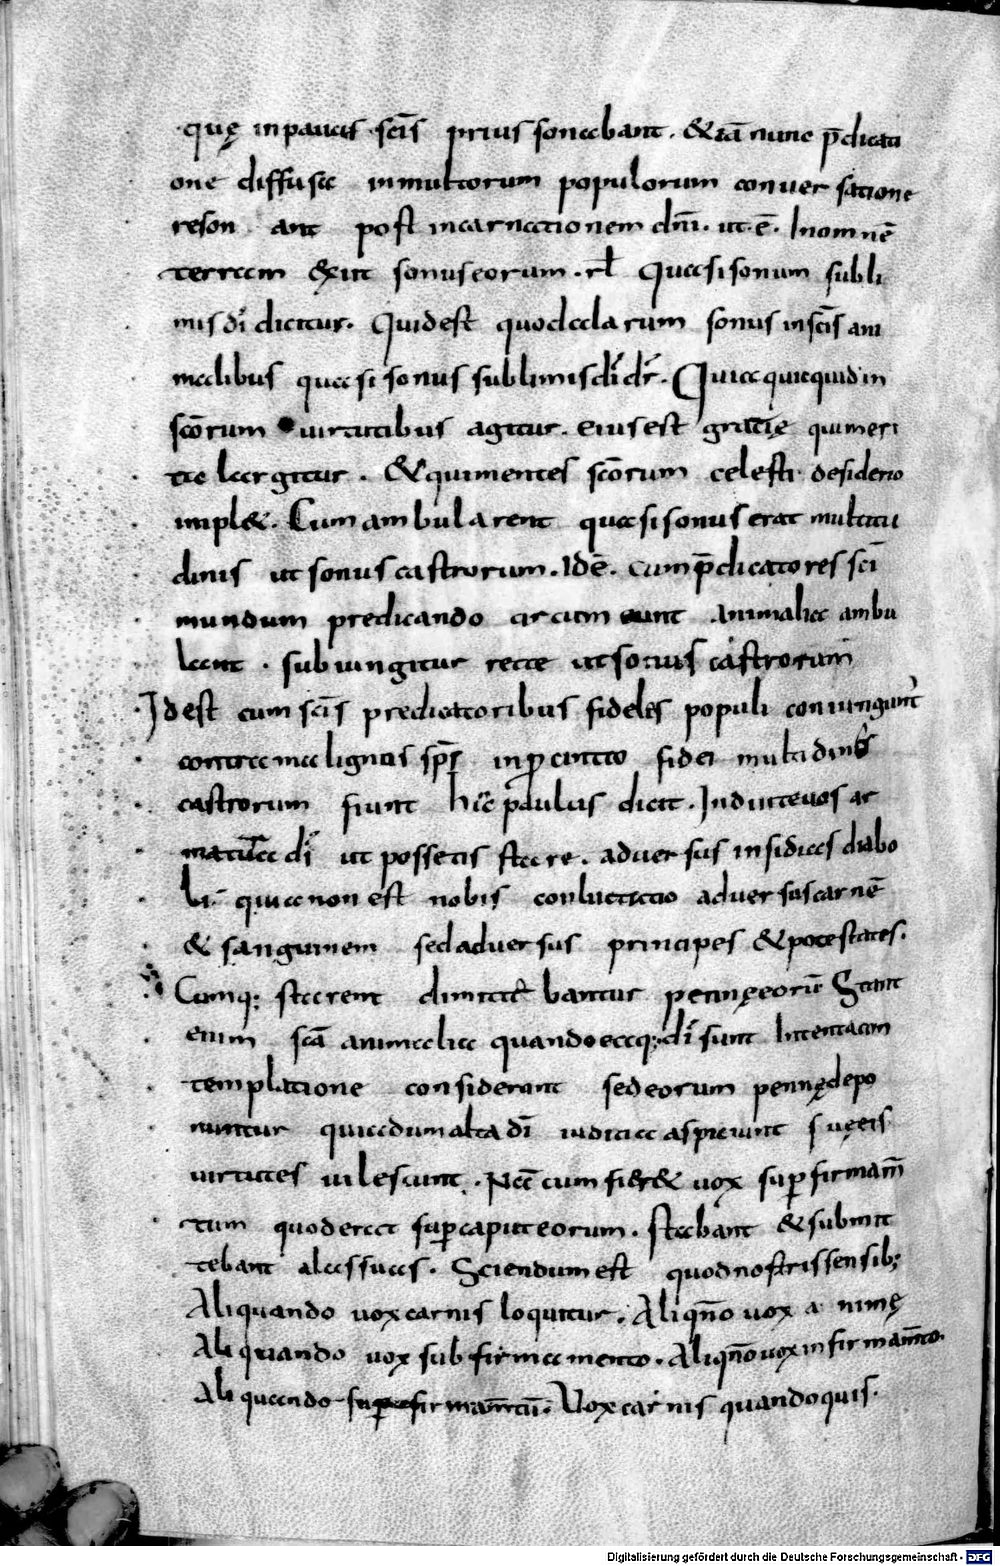 quę inpaucis scīs prius sonabant. &iā nunc p̄dicati
one diffusa inmultorum populorum conuersatione
resonant post incarnationem dn̄i. ut ē. Inomnē
terram exiit sonus eorum. rl̄ Quasi sonum subli
mis dī dicitur. Quid est quod alarum sonus inscīs ani
malibus quasi sonus sublimis dī dr̄. Quia quicquid in
scōrum uirtutibus agitur. eius est gratię qui meri
ta largitur. & qui mentes scōrum celesti desiderio
impl&. Cum ambularent quasi sonus erat multitu
dinis ut sonus castrorum. Idē. cum p̄dicatores scī
mundum predicando circumeunt animalia ambu
lant. subiungitur recte ut sonus castrorum
Id est cum scīs predicatoribus fideles populi coniungunt̄
contra malignos sps̄ in procinctu fidei multitudines
castrorum fiunt hīc paulus dicit. Induite uos ar
maturā dī ut possetis stare. aduersus insidias diabo
li. quia non est nobis conluctatio aduersus carnē
& sanguinem sed aduersus principes & potestates.
Cumq; starent dimittebantur pennę eorū Stant
enim scā animalia quando eaq; dī sunt Intentacon
templatione considerant sed eorum pennę depo
nuntur quia dum alta dī iudicia aspiciunt suę eis
uirtutes uilescunt. Nā cum fier& uox sup firmam̄
tum quod erat sup caput eorum. stabant & submit
tebant alas suas. Sciendum est quod nostris sensib;
Aliquando uox carnis loquitur. Aliqn̄o uox animę
Aliquando uox sub firmamento. Aliqn̄o uox in firmam̄to.
Aliquando sup firmam̄tū. Uox carnis quando quis.
Digitalisierung gefördert durch die Deutsche Forschungsgemeinschaft - DFG